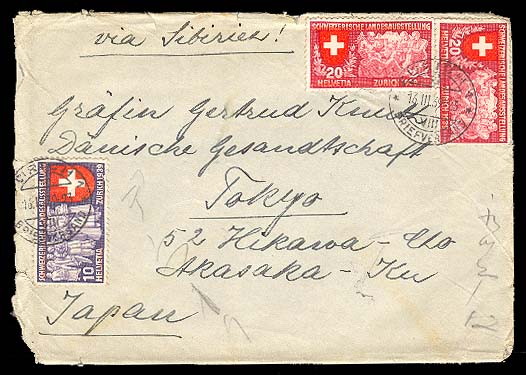 via Sibirien!
SCHWEIZERISCHE LANDESAUSSTELLUNG
20
HELVETIA ZURICH
SCHWEIZERISCHE LANDESAUSSTELLUNG
20
HELVETIA ZURICH 1939
Gräfin Gertrud
Dänische Gesandtschaft
Tokyo
52 Hikawa-Cho
Akasaka-Ku
Japan
SCHWEIZERISCHE LANDESAUSSTELLUNG
ZURICH 1939
10
HELVETIA
16.III.39
XIII
BRIEFVERSAND